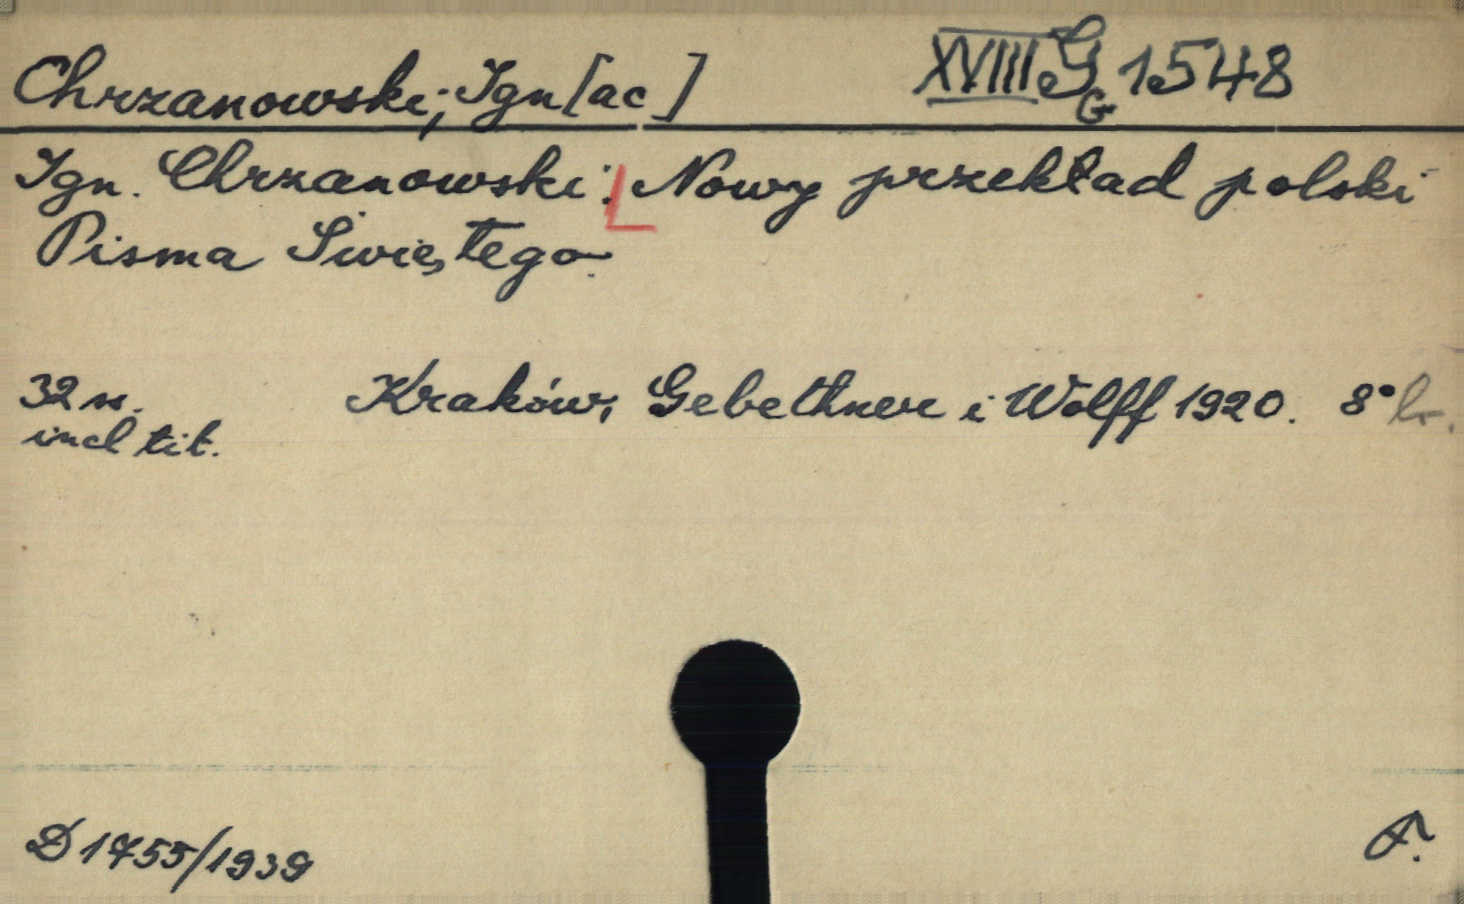 Chrzanowski, Ign[ac]
XVIII G 1548
G
Ign. Chrzanowski: Nowy przekład polski
Pisma Świętego.
32 ss. Kraków, Gebethner i Wolff 1920. 8° br.
incl tit.
D 1755/1939